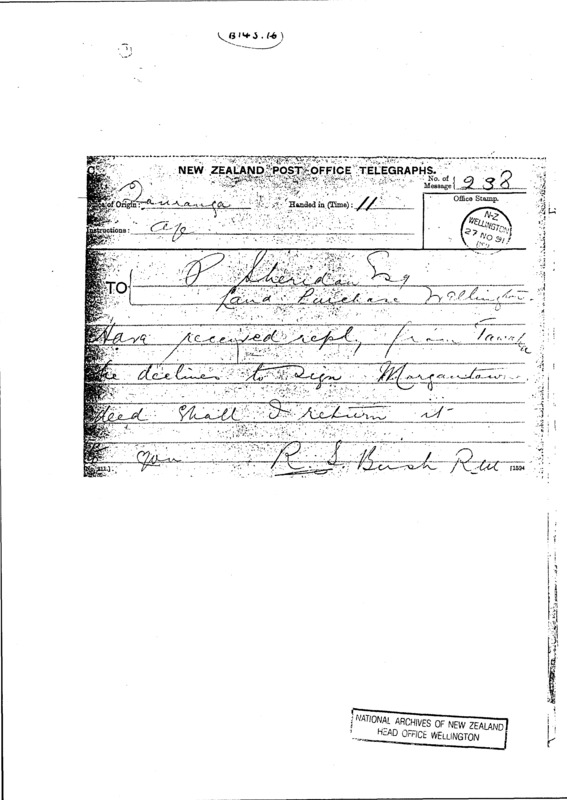 B143.16
NEW ZEALAND POST OFFICE TELEGRAPHS.
No. of Message 238
of Origin: Tauranga
Handed in (Time): 11
Office Stamp.
Instructions:
N-Z
WELLINGTON
27 NO 91
TO P Sheridan Esq
Land Purchase Wellington
Have received reply from
he declines to sign Morgantown
deed Shall I return it
to you
R. S. Bush RM
NATIONAL ARCHIVES OF NEW ZEALAND
HEAD OFFICE WELLINGTON